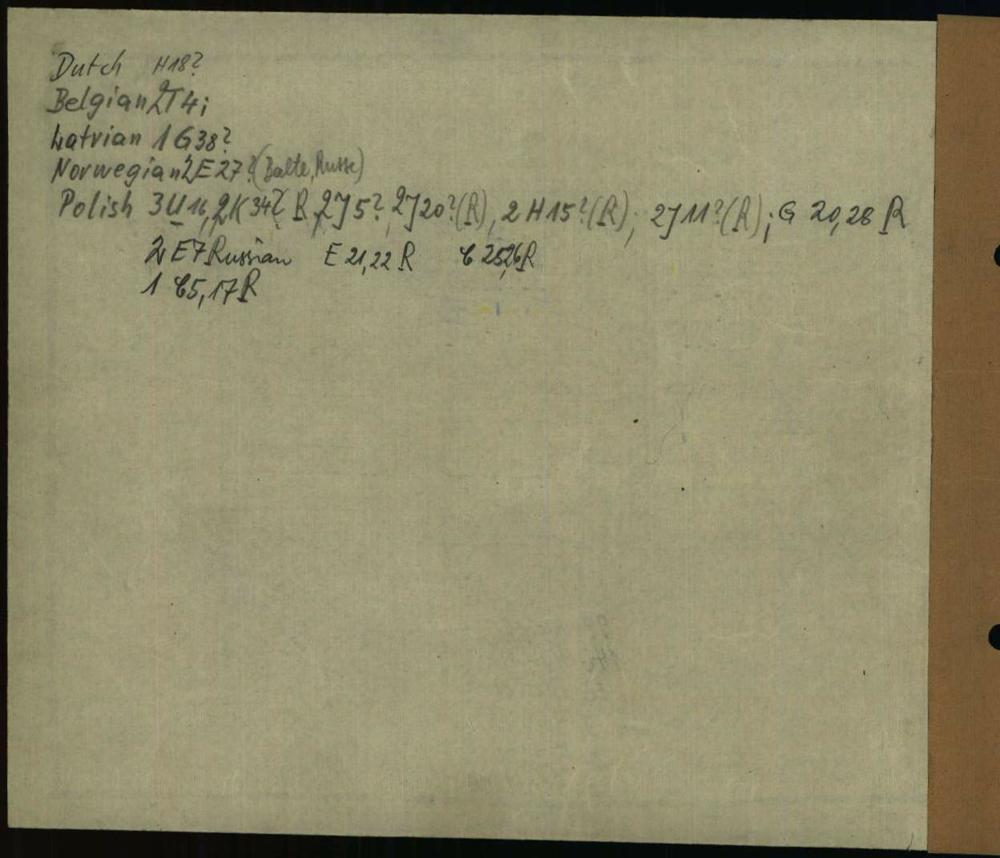 Dutch H18?
Belgian 2T4;
Latvian 1 G38?
Norwegian 2E27? (Balte, Russe)
Polish 3U16, 2K34? R, 2J5?, 2J20? (R), 2 H15? (R), 2J11? (R); G 20,28 R
2 E7 Russian E 21,22 R C 25,26 R
1 C5,17 R